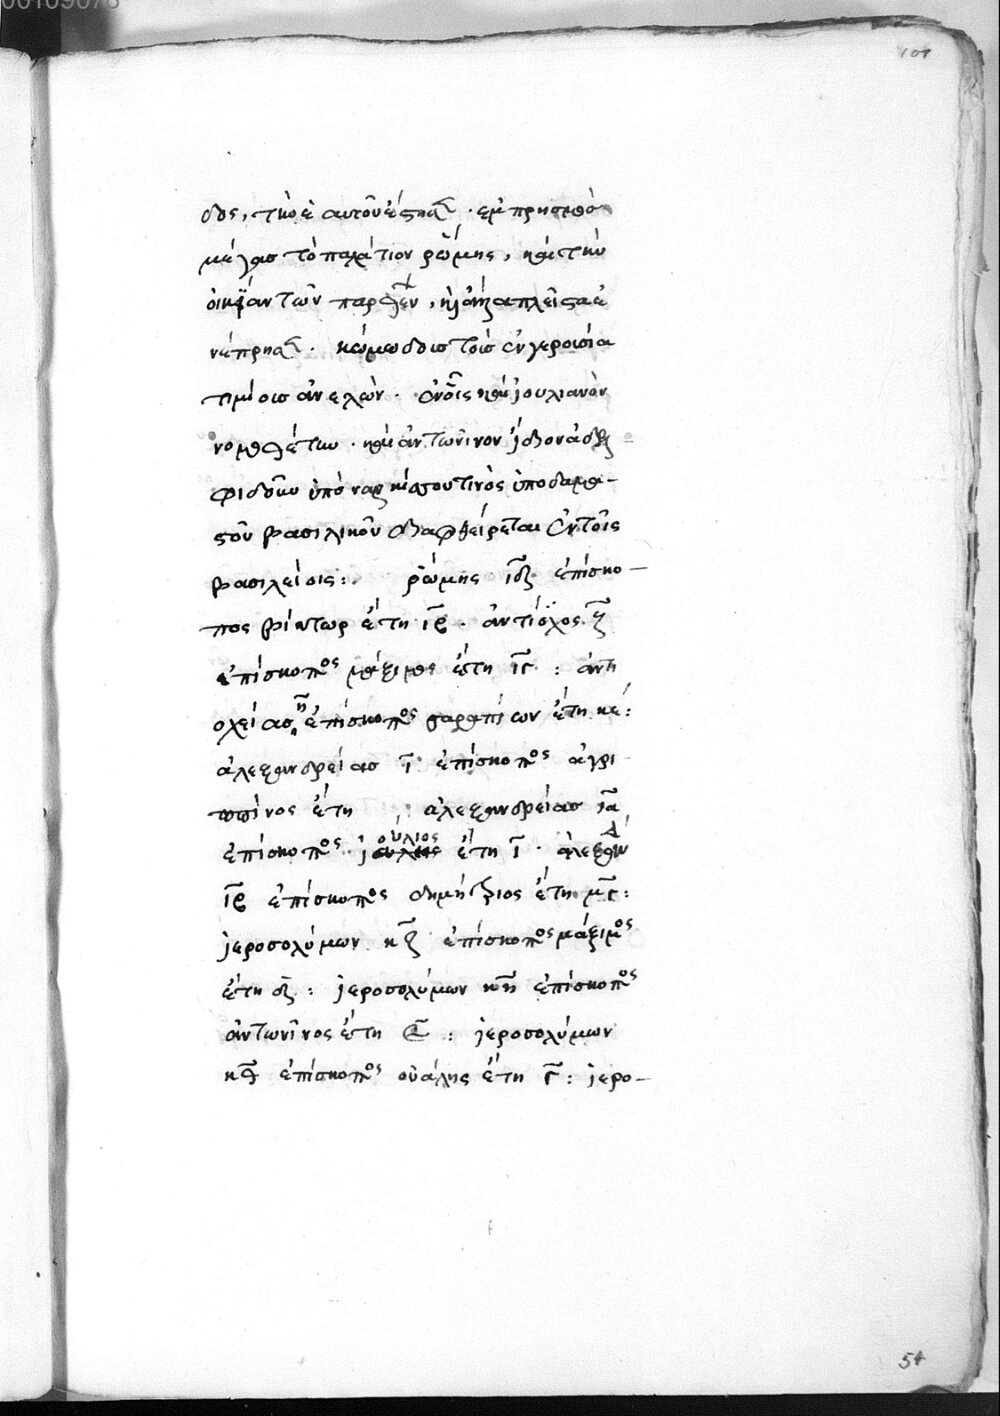 00109078
101
δος, τὴν ἑαυτοῦ ἔστησ. ἐμπρησμὸσ
μέγας τὸ παλάτιον ῥώμης, καὶ τὴν
οἰκίαν τῶν παρθέν, καὶ ἄλλα πλεῖστα ἐ
νέπρησ. κώμωδος τοῖσ ἐν γερουσία
τιμίοισ ἀνελὼν. ἐν οἷς καὶ ἰουλιανὸν
νομοθέτην. καὶ ἀντωνῖνον
ὑπὸ ναρκίσσου τινὸς ὑπὸ
τοῦ βασιλικοῦ διαφθείρεται ἐν τοῖς
βασιλείοις: ῥώμης ιδ ἐπίσκο
πος βίκτωρ ἔτη ιβ. ἀντιόχος ζ
ἐπίσκοπος μάξιμος ἔτη ιγ: ἀντι
οχείασ η ἐπίσκοπος σαραπίων ἔτη κε:
ἀλεξανδρείασ ι ἐπίσκοπος ἀγρι
ππῖνος ἔτη ἀλεξανδρείασ ια
ἐπίσκοπος ἰούλιος ἔτη ι. ἀλεξανδ
ιβ ἐπίσκοπος δημήτριος ἔτη μγ:
ἱεροσολύμων κζ ἐπίσκοπος μάξιμος
ἔτη δ: ἱεροσολύμων κη ἐπίσκοπος
ἀντωνῖνος ἔτη ε: ἱεροσολύμων
κθ ἐπίσκοπος οὐάλης ἔτη γ: ἱερο
54